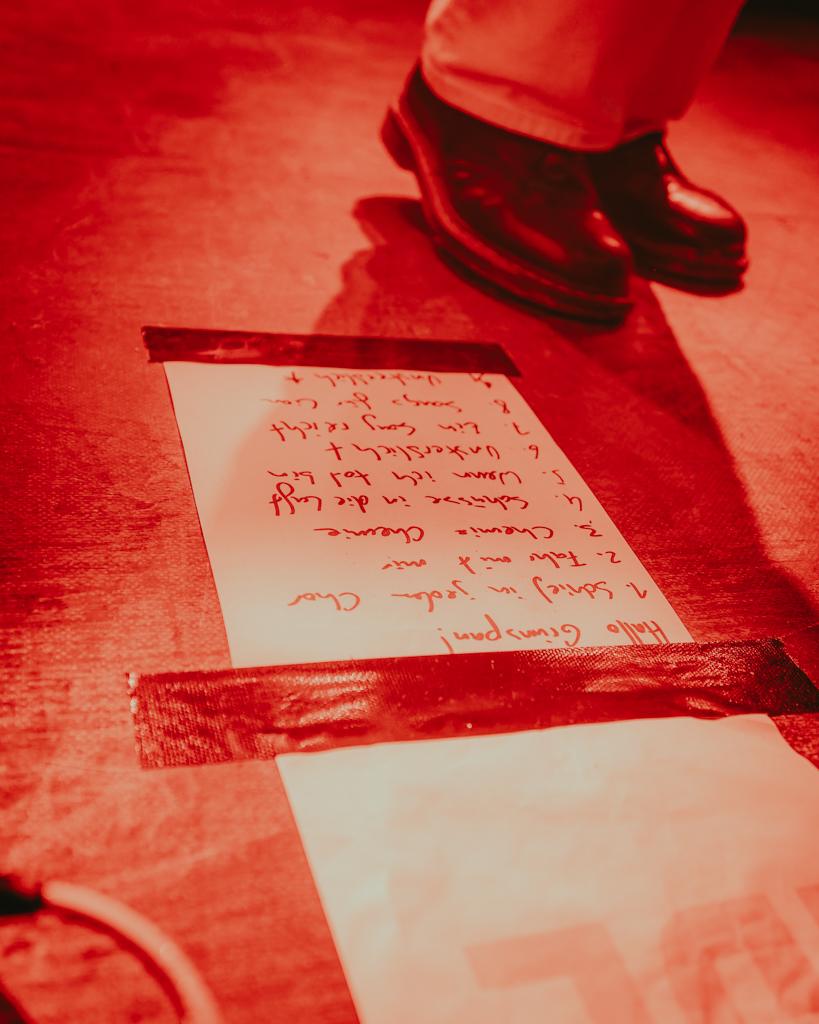 Hallo Grünspan!
1. Schief in jedem Chor
2. Fahr mit mir
3. Chemie Chemie
4. Schüsse in die Luft
5. Wenn ich tot bin
6.
7. Ein Song reicht
8. Songs für Liam
9.